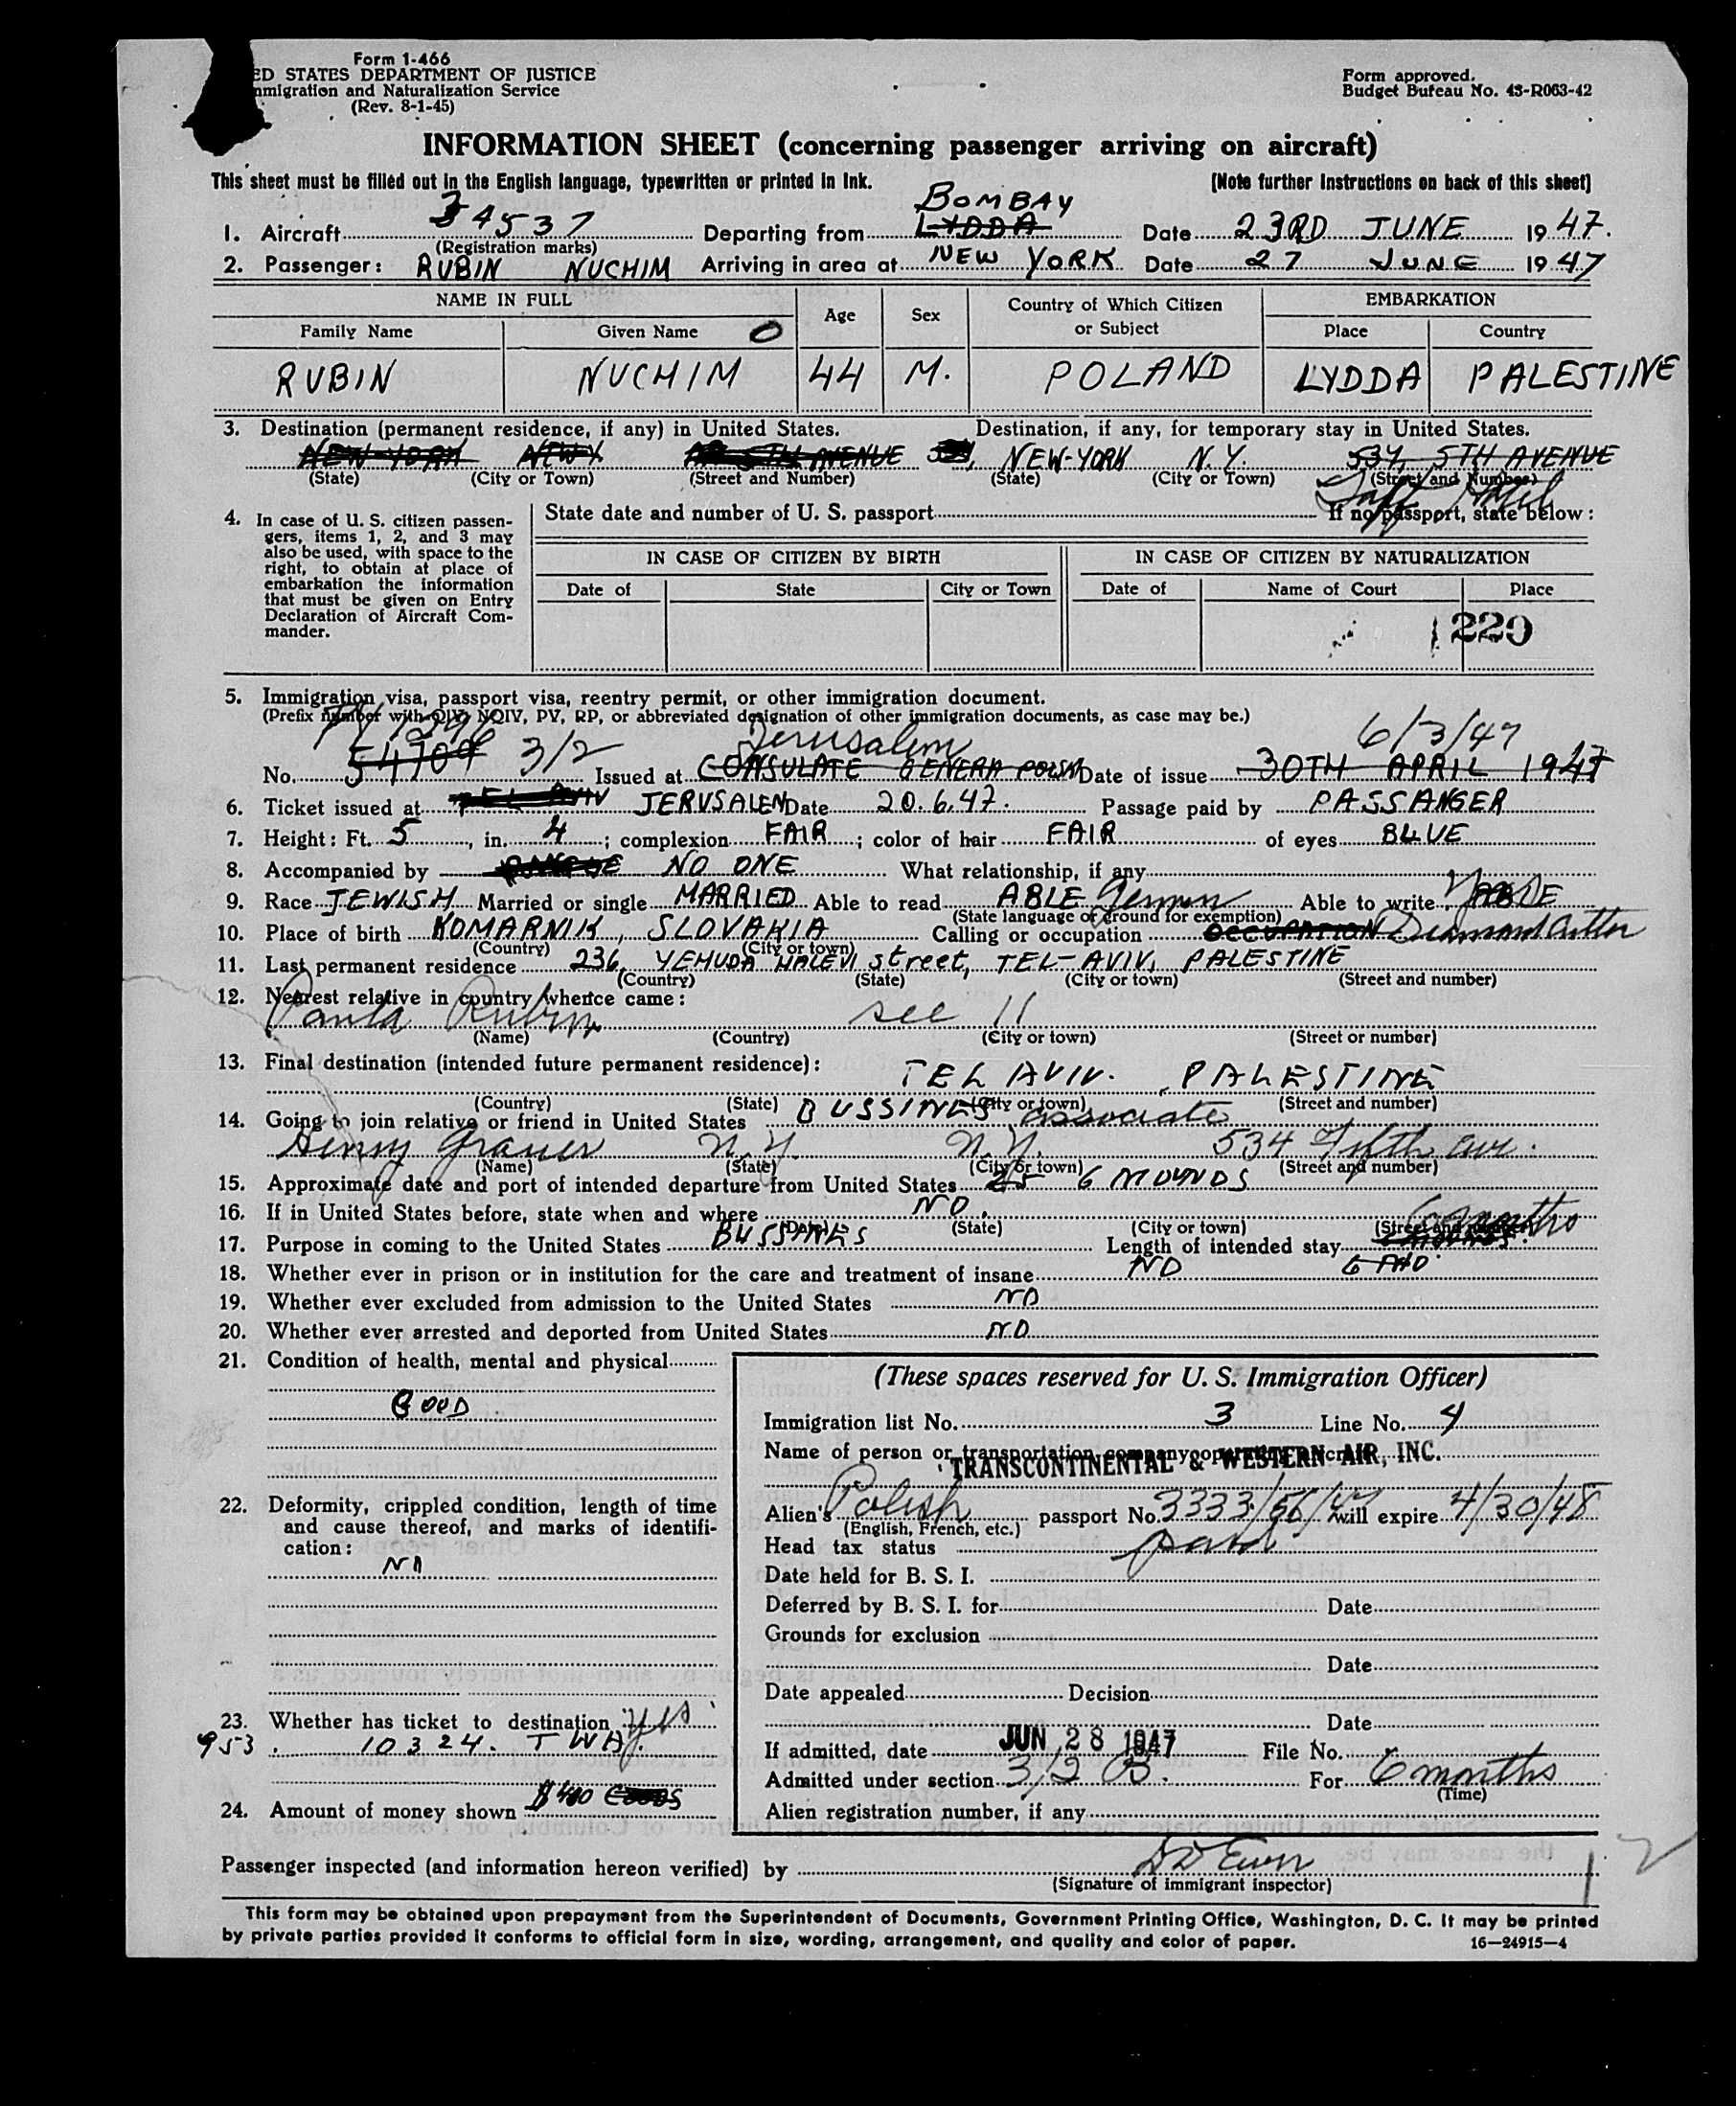 Form 1-466
ED STATES DEPARTMENT OF JUSTICE
mmigration and Naturalization Service
(Rev. 8-1-45)
Form approved.
Budget Bureau No. 43-R063-42
INFORMATION SHEET (concerning passenger arriving on aircraft)
This sheet must be filled out in the English language, typewritten or printed in ink. [Note further instructions on back of this sheet]
BOMBAY
1. Aircraft 34537 Departing from LYDDA Date 23RD JUNE 1947.
(Registration marks)
2. Passenger: RUBIN NUCHIM Arriving in area at NEW YORK Date 27 JUNE 1947
NAME IN FULL Age Sex Country of Which Citizen or Subject EMBARKATION
Family Name Given Name Place Country
RUBIN NUCHIM 44 M. POLAND LYDDA PALESTINE
3. Destination (permanent residence, if any) in United States. Destination, if any, for temporary stay in United States.
NEW-YORK 5TH AVENUE NEW-YORK N.Y. 534, 5TH AVENUE
(State) (City or Town) (Street and Number) (State) (City or Town) (Street and Number)
Taft Hotel
4. In case of U. S. citizen passengers, items 1, 2, and 3 may also be used, with space to the right, to obtain at place of embarkation the information that must be given on Entry Declaration of Aircraft Commander.
State date and number of U. S. passport If no passport, state below:
IN CASE OF CITIZEN BY BIRTH IN CASE OF CITIZEN BY NATURALIZATION
Date of State City or Town Date of Name of Court Place
1220
5. Immigration visa, passport visa, reentry permit, or other immigration document.
(Prefix number with QIV, NQIV, PV, RP, or abbreviated designation of other immigration documents, as case may be.)
Jerusalem 6/3/47
No. 54709 3/2 Issued at CONSULATE Date of issue 30TH APRIL 1947
6. Ticket issued at TEL AVIV JERUSALEM Date 20.6.47. Passage paid by PASSANGER
7. Height: Ft. 5, in. 4; complexion FAIR; color of hair FAIR of eyes BLUE
8. Accompanied by NO ONE What relationship, if any
9. Race JEWISH Married or single MARRIED Able to read ABLE German Able to write ABLE
(State language or ground for exemption)
10. Place of birth KOMARNIK, SLOVAKIA Calling or occupation OCCUPATION Diamond Cutter
(Country) (City or town)
11. Last permanent residence 236, YEHUDA HALEVI street, TEL-AVIV, PALESTINE
(Country) (State) (City or town) (Street and number)
12. Nearest relative in country whence came:
Paula Rubin see 11
(Name) (Country) (City or town) (Street or number)
13. Final destination (intended future permanent residence): TEL AVIV. PALESTINE
(Country) (State) (City or town) (Street and number)
14. Going to join relative or friend in United States BUSSINES associate
Henry Grauer N.Y. N.Y. 534 Fifth ave.
(Name) (State) (City or town) (Street and number)
15. Approximate date and port of intended departure from United States 6 MOUNDS
16. If in United States before, state when and where NO.
(Date) (State) (City or town) (Street and number)
6 months
17. Purpose in coming to the United States BUSSINES Length of intended stay
6 MO.
18. Whether ever in prison or in institution for the care and treatment of insane NO
19. Whether ever excluded from admission to the United States NO
20. Whether ever arrested and deported from United States NO
21. Condition of health, mental and physical
GOOD
22. Deformity, crippled condition, length of time and cause thereof, and marks of identification:
NO
23. Whether has ticket to destination yes
953 10324. TWA.
24. Amount of money shown $400
(These spaces reserved for U. S. Immigration Officer)
Immigration list No. 3 Line No. 4
Name of person or transportation company operating aircraft
TRANSCONTINENTAL & WESTERN AIR, INC.
Alien's Polish passport No. 3333/56/47 will expire 4/30/48
(English, French, etc.)
Head tax status paid
Date held for B. S. I.
Deferred by B. S. I. for Date
Grounds for exclusion
Date
Date appealed Decision
Date
If admitted, date JUN 28 1947 File No.
Admitted under section 3/2 B. For 6 months
(Time)
Alien registration number, if any
Passenger inspected (and information hereon verified) by
(Signature of immigrant inspector)
This form may be obtained upon prepayment from the Superintendent of Documents, Government Printing Office, Washington, D. C. It may be printed
by private parties provided it conforms to official form in size, wording, arrangement, and quality and color of paper. 16—24915—4